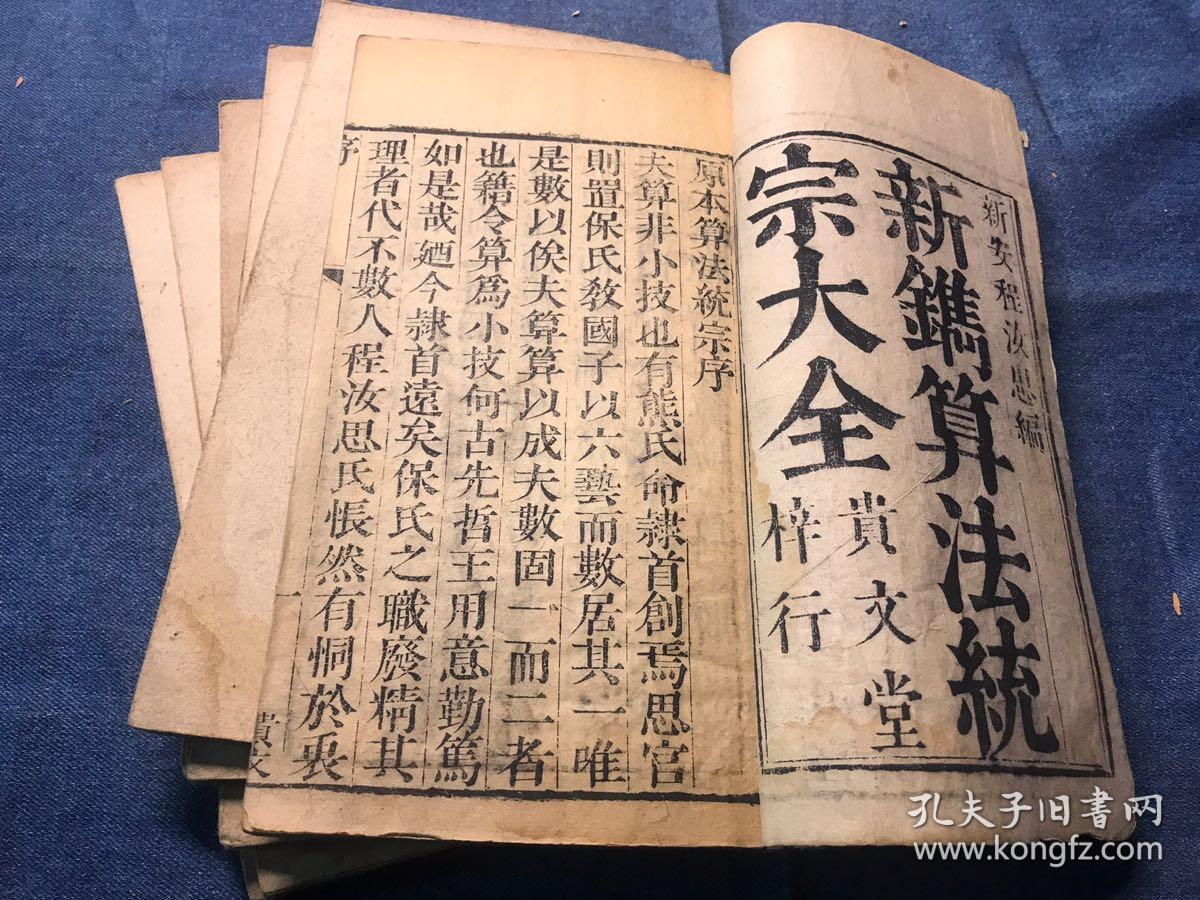 新安程汝思編
新鐫算法統
宗大全
貴文堂
梓行
原本算法統宗序
夫算非小技也有熊氏命隸首創焉思官
則置保氏敎國子以六藝而數居其一唯
是數以俟夫算算以成夫數固一而二者
也籍令算爲小技何古先哲王用意勤篤
如是哉廼今隸首遠矣保氏之職廢精其
理者代不數人程汝思氏悵然有恫於衷
序
一
孔夫子旧書网
www.kongfz.com